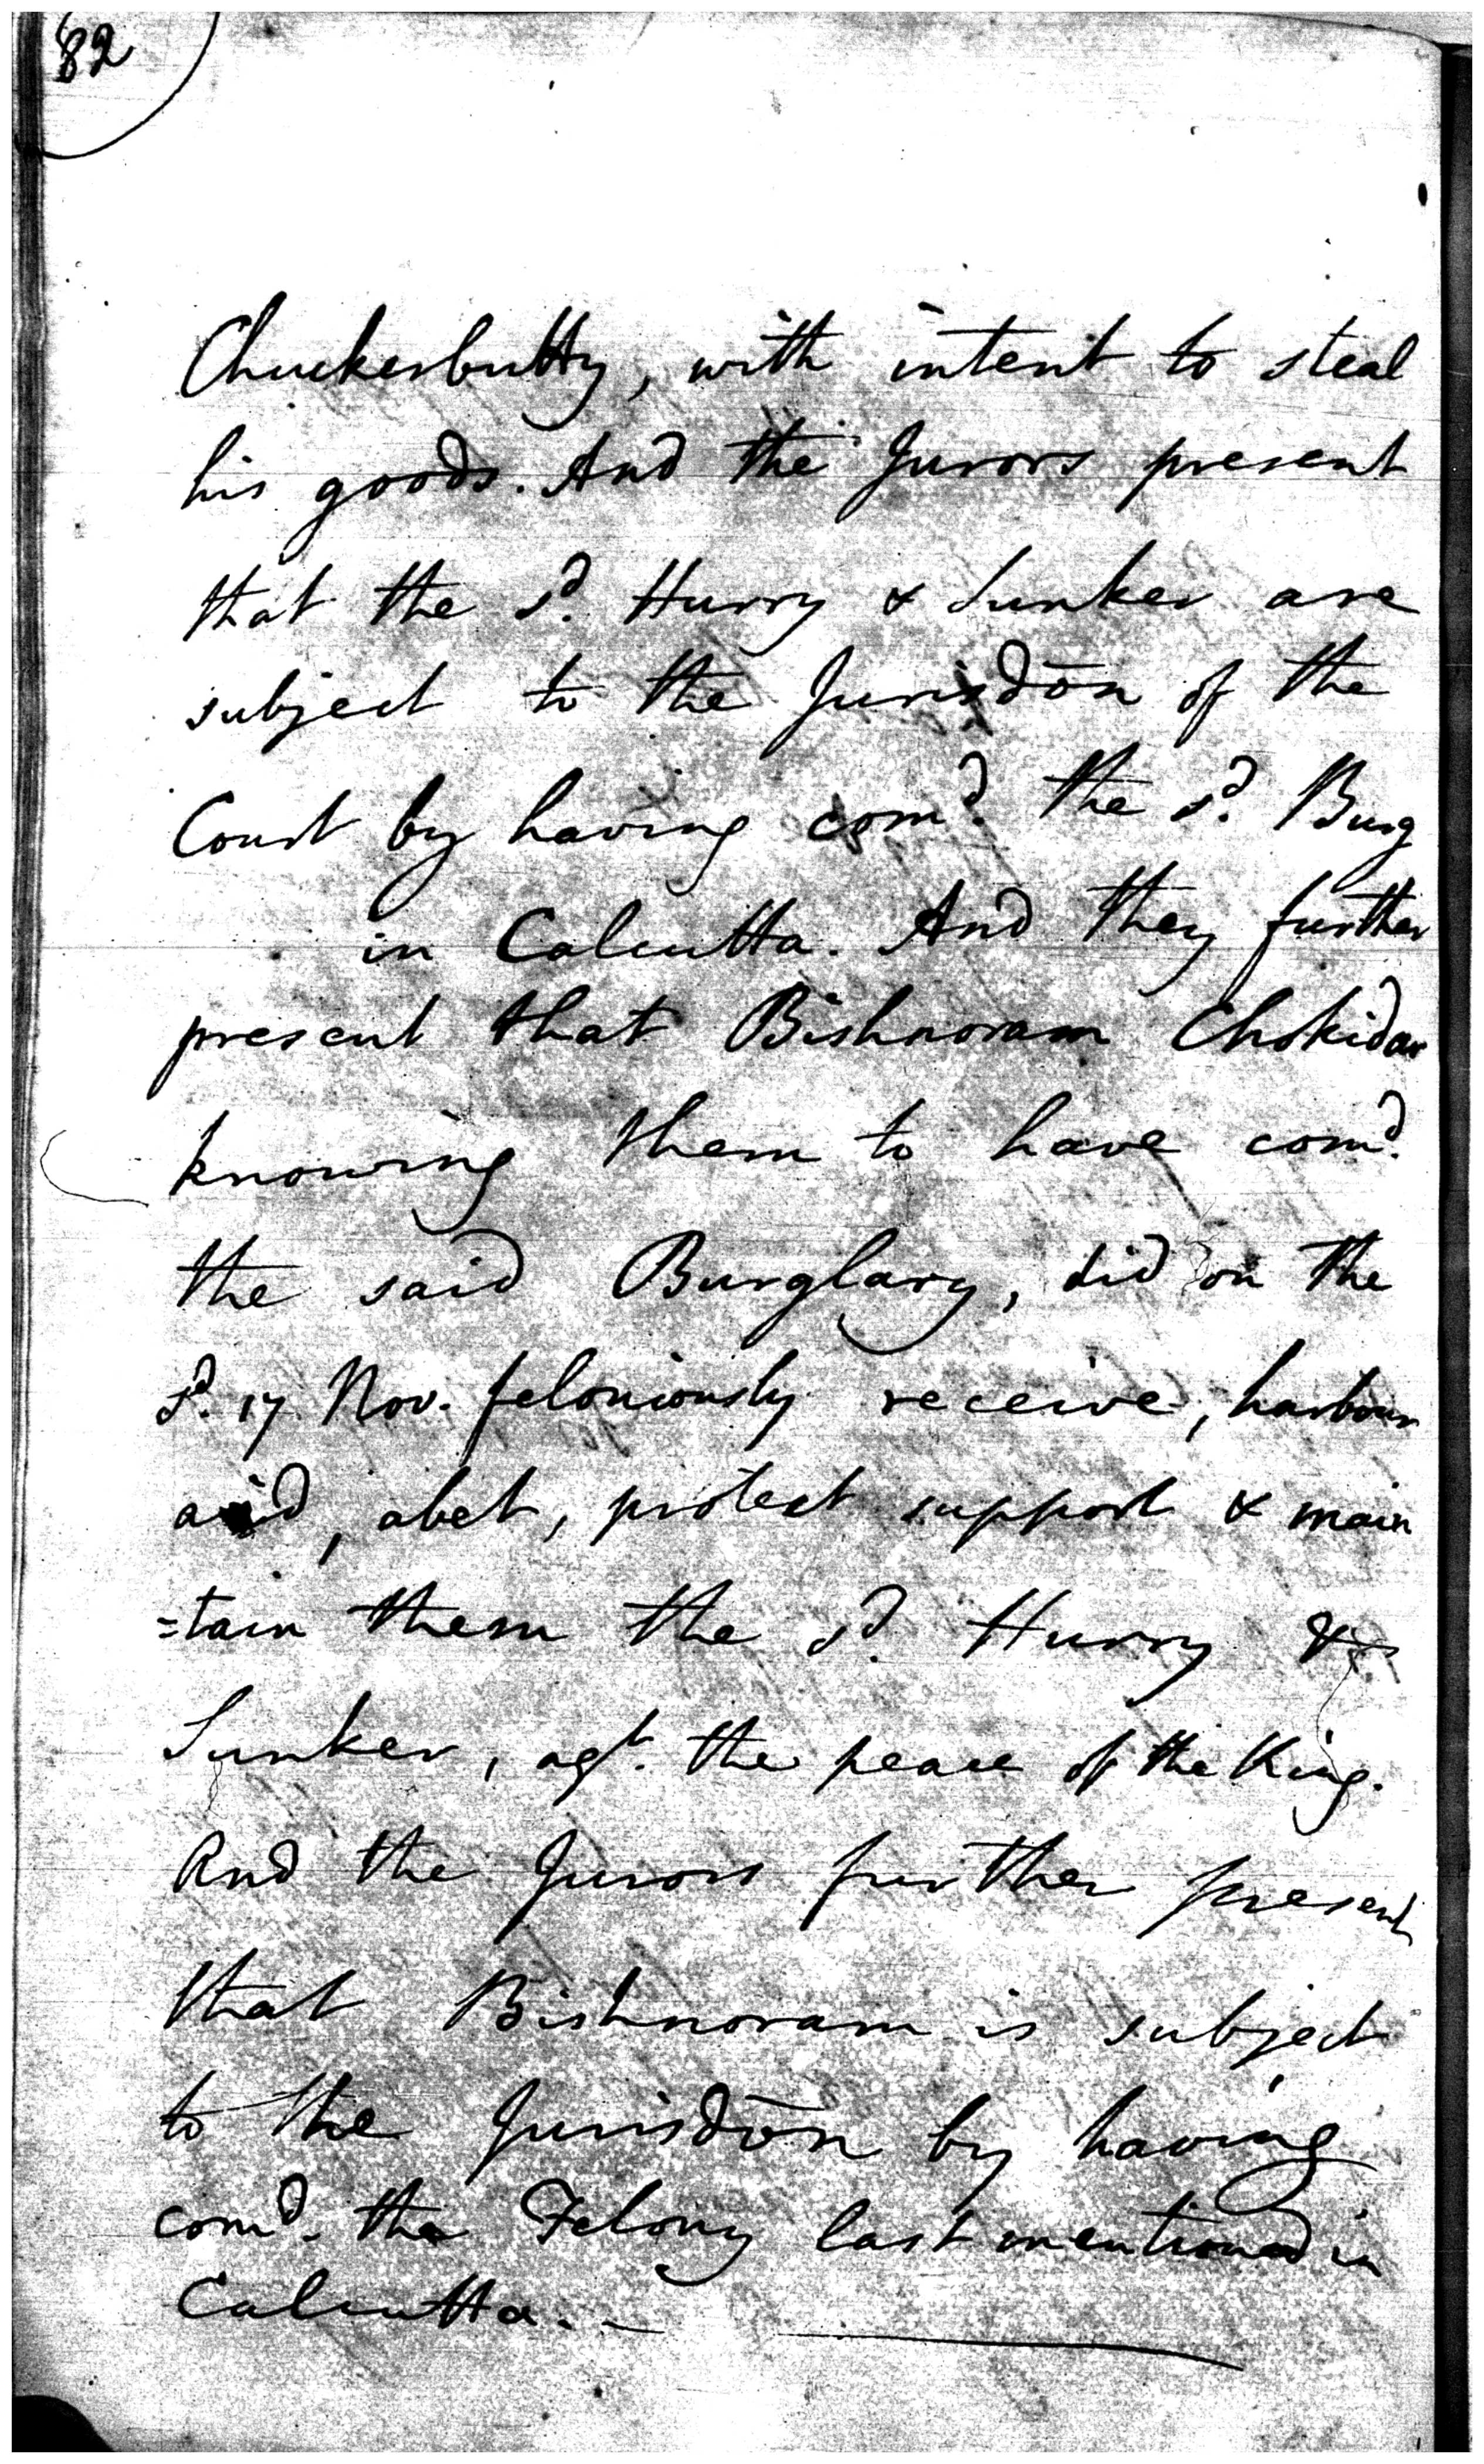 82
Chuckerbutty, with intent to steal
his goods. And the Jurors present
that the sd. Hurry & Sunker are
subject to the Jurisdōn of the
Court by having comd. the sd. Burg
in Calcutta. And they further
present that Bishnoram Chokidar
knowing them to have comd.
the said Burglary, did on the
sd. 17 Nov. feloniously receive, harbour
aid, abet, protect support & main
=tain them the sd. Hurry &
Sunker, agt. the peace of the King.
And the Jurors further present
that Bishnoram is subject
to the Jurisdōn by having
comd. the Felony last mentioned in
Calcutta. –